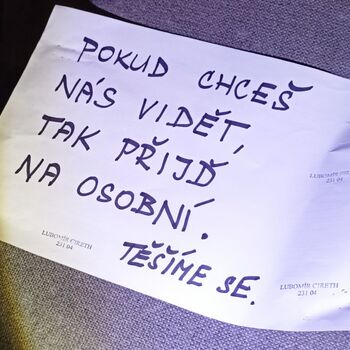 POKUD CHCEŠ
NÁS VIDĚT,
TAK PŘIJĎ
NA OSOBNÍ.
TĚŠÍME SE.
LUBOMÍR CIRETH
231 04
LUBOMÍR CIRETH
231 04
LUBOMÍR CIRETH
231 04